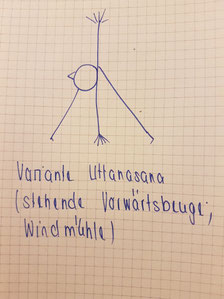 Variante Uttanasana
(stehende Vorwärtsbeuge,
Windmühle)